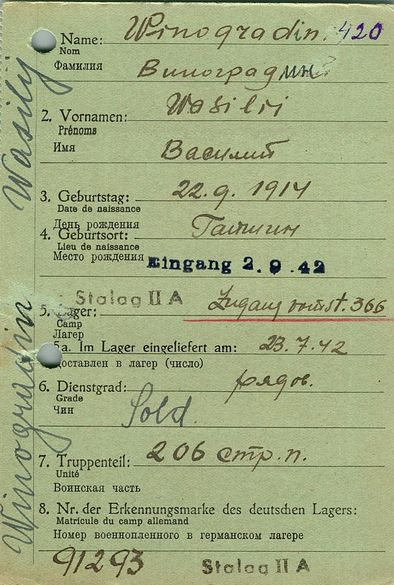 Name: Winogradin. 420
Nom
Фамилия Виноградин
2. Vornamen: Wasili
Prénoms
Имя Василий
3. Geburtstag: 22.9.1914
Date de naissance
День рождения
4. Geburtsort:
Lieu de naissance
Место рождения Eingang 2.9.42
Stalag II A
5. Lager: Zugang vom St. 366
Camp
Лагер
5a. Im Lager eingeliefert am: 23.7.42
Доставлен в лагер (число)
6. Dienstgrad: рядов.
Grade
Чин Sold.
7. Truppenteil: 206 стр.п.
Unité
Воинская часть
8. Nr. der Erkennungsmarke des deutschen Lagers:
Matricule du camp allemand
Номер военнопленного в германском лагере
91293 Stalag II A
Winogradin Wasilij